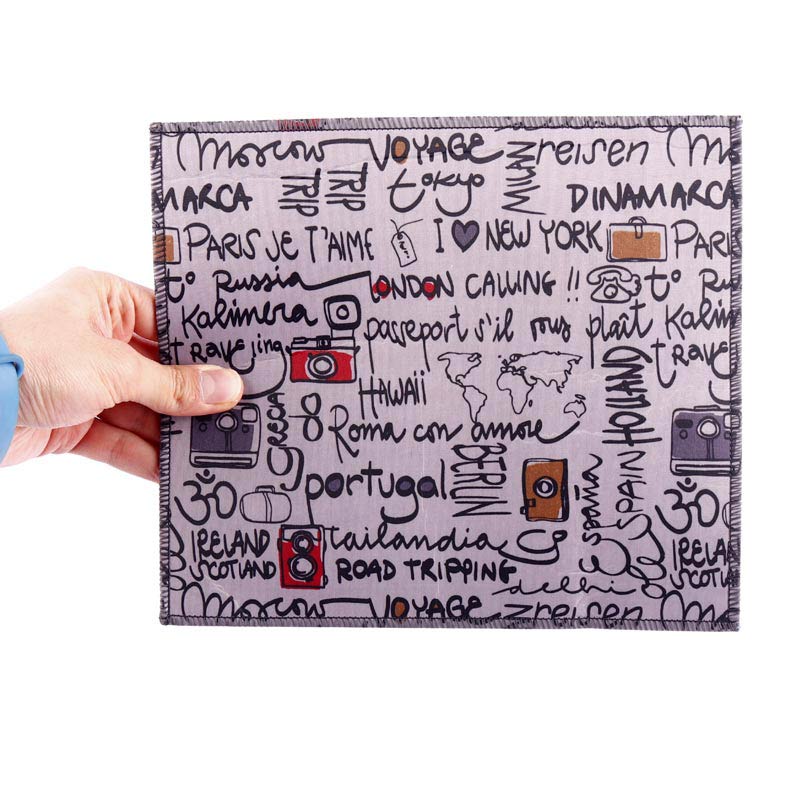 Moscow VOYAGE MILAN reisen M
MARCA TRIP TRIP tokyo DINAMARCA
PARIS JE T'AIME I NEW YORK PARIS
to Russia LONDON CALLING !! to Ru
Kalimera passeport s'il vous plaît Kalimera
traveling HAWAII HOLLAND TRAVE
GRECIA do Roma con amore
portugal BERLIN España SPAIN
ॐ ॐ
IRELAND tailandia IRELA
SCOTLAND ROAD TRIPPING delhi SCOTLA
Moscow VOYAGE reisen M